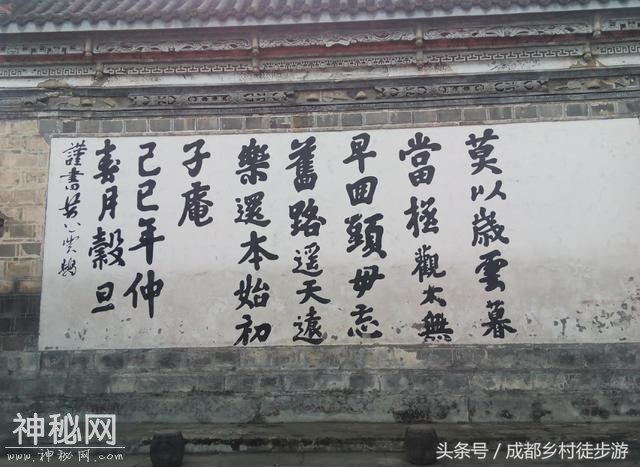 莫以歲雲暮
當極觀太無
早回頭毋忘
舊路遥天遠
樂還本始初
子庵
己巳年仲
春月穀旦
謹書
神秘网
www.神秘网.com
头条号 / 成都乡村徒步游